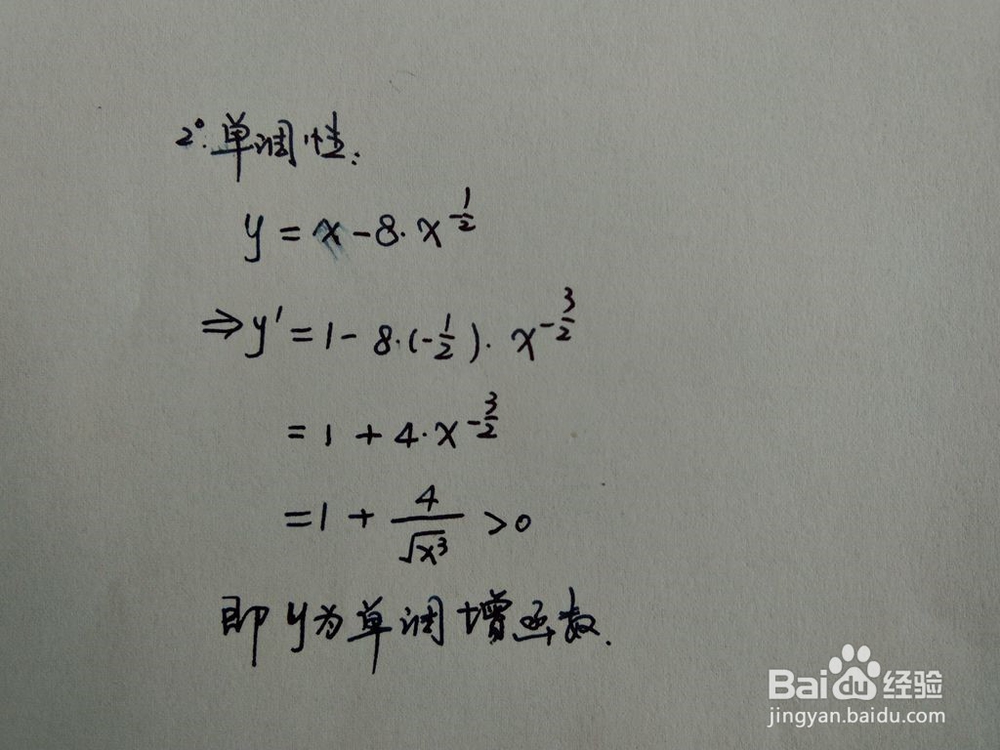 2°.单调性:
y = x - 8·x^{-\frac{1}{2}}
⇒ y' = 1 - 8·(-\frac{1}{2})·x^{-\frac{3}{2}}
= 1 + 4·x^{-\frac{3}{2}}
= 1 + \frac{4}{\sqrt{x^3}} > 0
即 y为单调增函数.
Baidu经验
jingyan.baidu.com